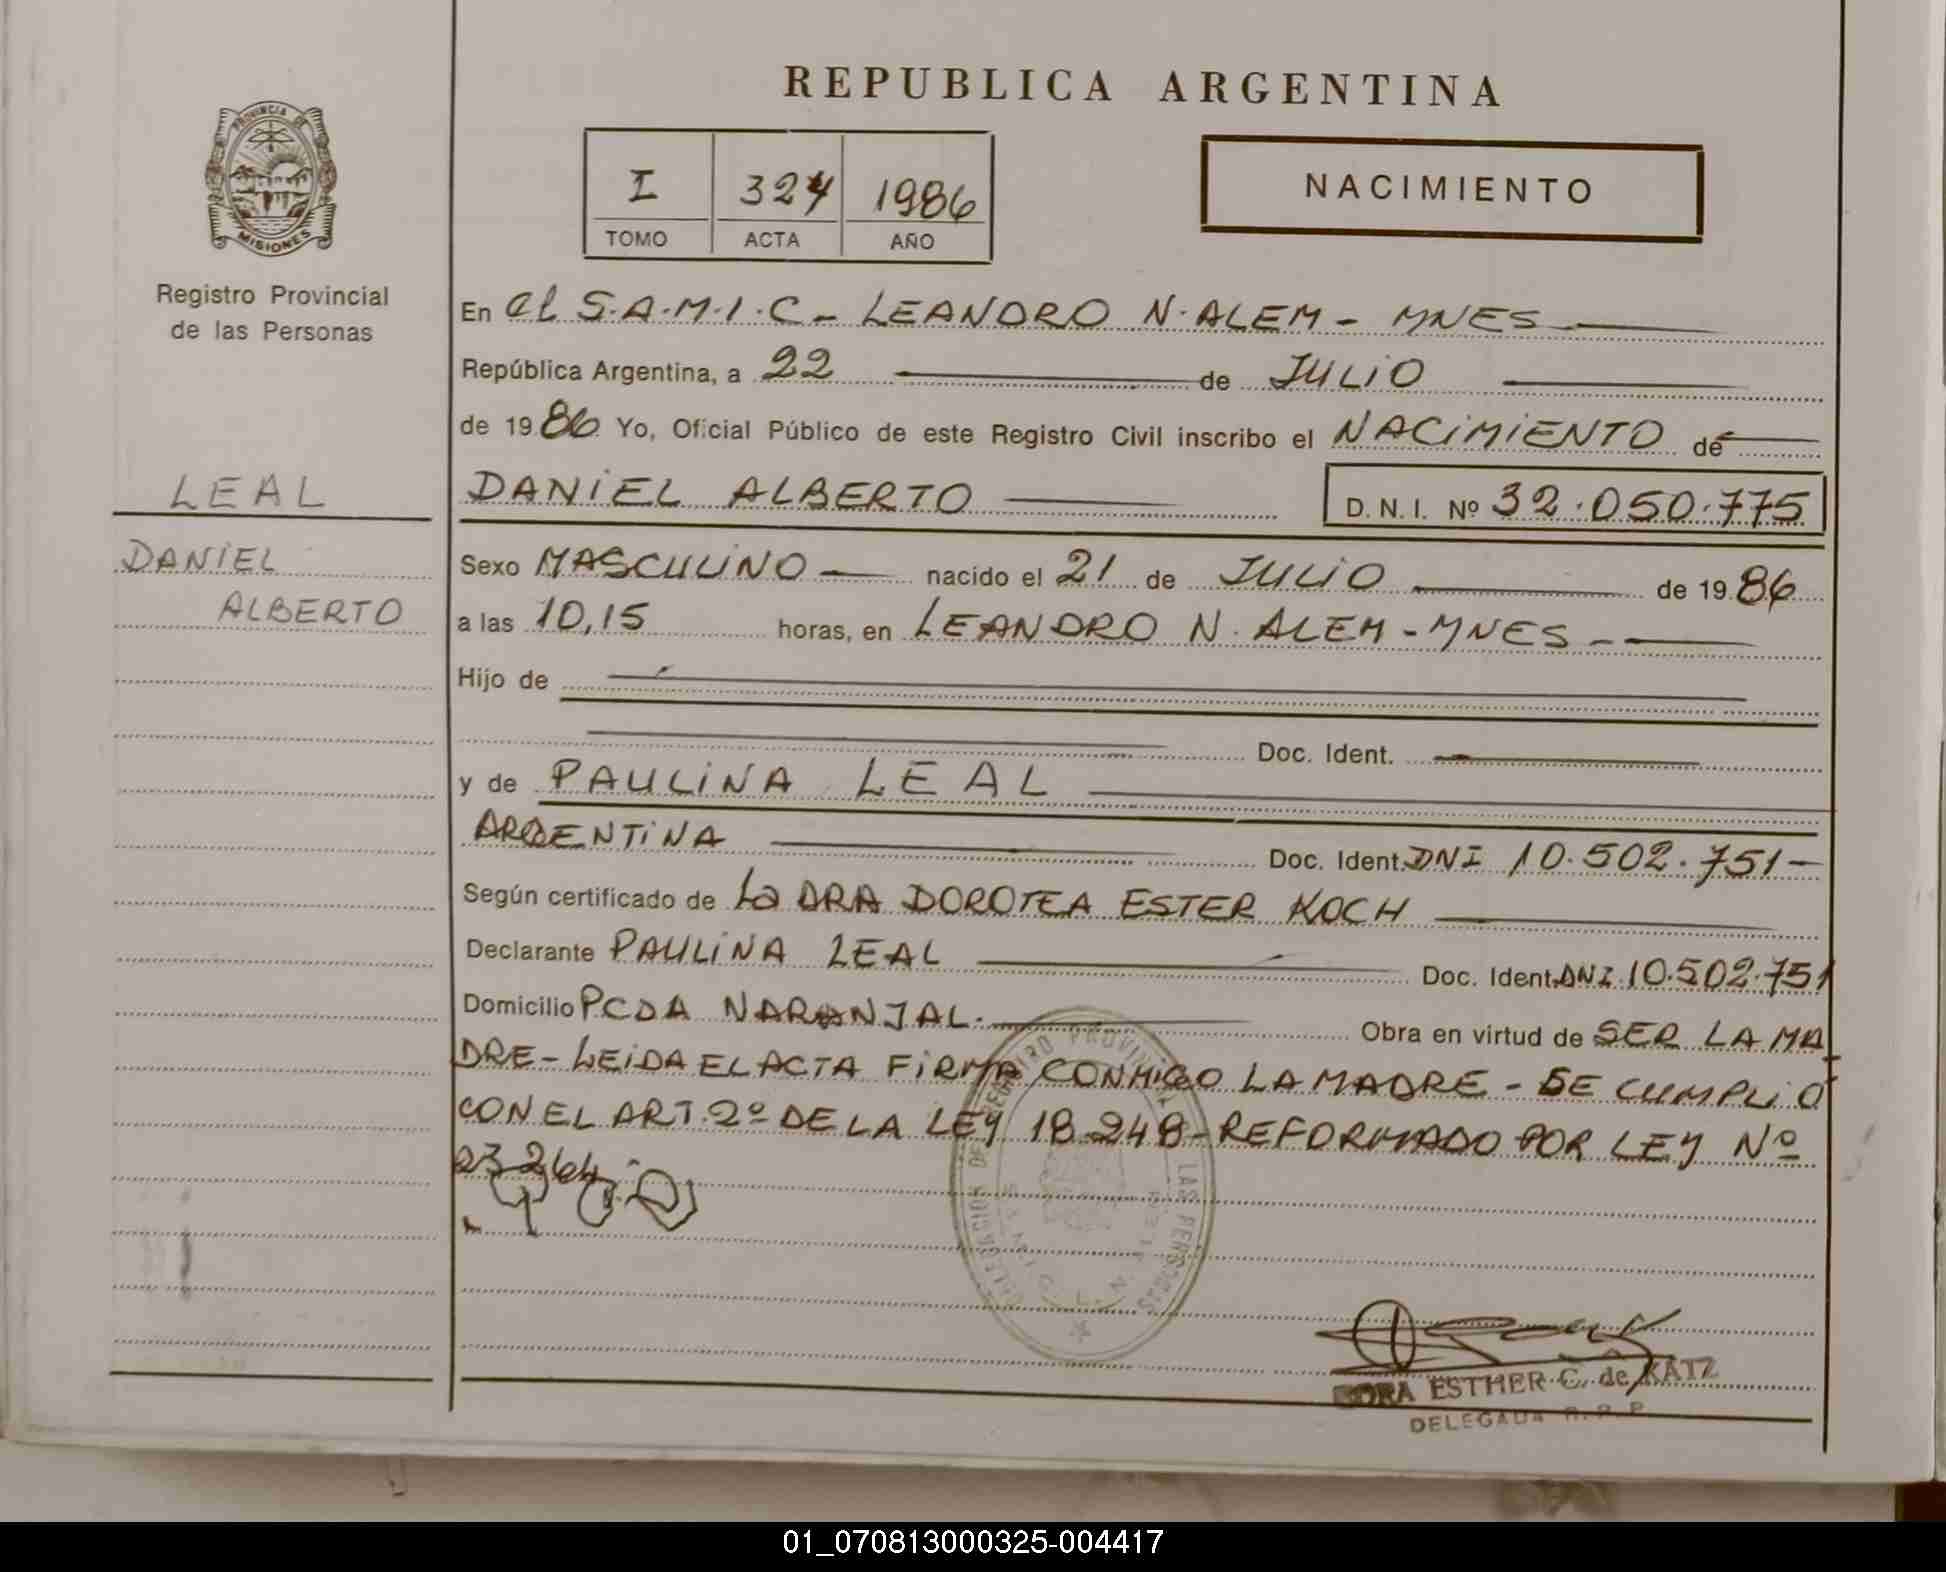 REPUBLICA ARGENTINA
PROVINCIA DE
MISIONES
Registro Provincial
de las Personas
I 324 1986
TOMO ACTA AÑO
NACIMIENTO
En el S.A.M.I.C - LEANDRO N. ALEM - MNES
República Argentina, a 22 de JULIO
de 1986 Yo, Oficial Público de este Registro Civil inscribo el NACIMIENTO de
LEAL
DANIEL ALBERTO D. N. I. Nº 32.050.775
DANIEL
ALBERTO
Sexo MASCULINO nacido el 21 de JULIO de 1986
a las 10,15 horas, en LEANDRO N. ALEM - MNES -
Hijo de
Doc. Ident.
y de PAULINA LEAL
ARGENTINA Doc. Ident. DNI 10.502.751-
Según certificado de La DRA DOROTEA ESTER KOCH
Declarante PAULINA LEAL Doc. Ident. DNI 10.502.751
Domicilio PCDA NARANJAL. Obra en virtud de SER LA MA
DRE - LEIDA EL ACTA FIRMA CONMIGO LA MADRE - SE CUMPLIO
CON EL ART. 2º DE LA LEY 18.248 - REFORMADO POR LEY Nº
23264
DELEGACION DE REGISTRO PROVINCIAL LAS PERSONAS
ESTHER C. de KATZ
DELEGADA R. P. P.
01_070813000325-004417